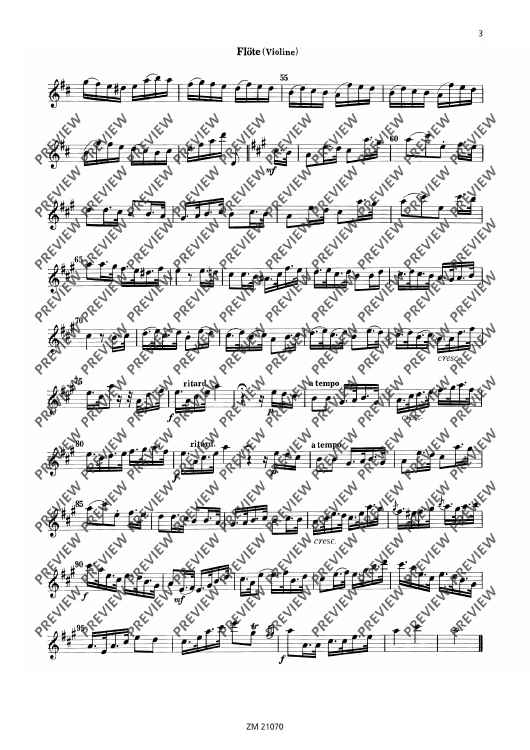 3
Flöte (Violine)
55
mf
60
65
70
cresc.
75
ritard.
a tempo
f
p
80
ritard.
a tempo
f
85
cresc.
90
f
mf
95
tr
f
ZM 21070
PREVIEW PREVIEW PREVIEW PREVIEW PREVIEW PREVIEW PREVIEW PREVIEW